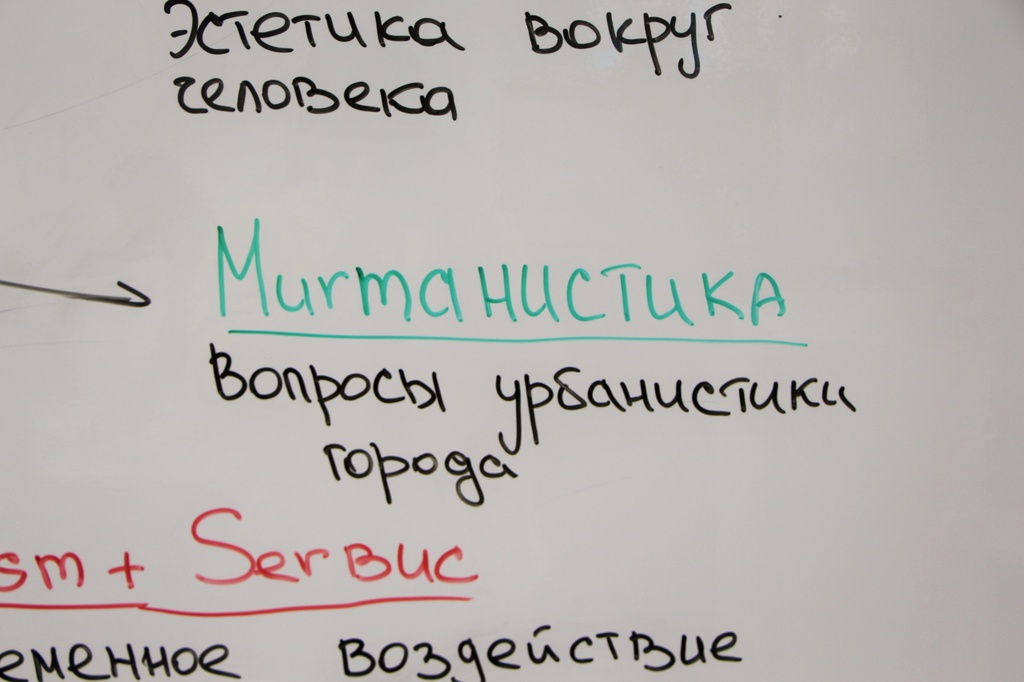 Эстетика вокруг
человека
Мигтанистика
Вопросы урбанистики
города
sm + Serвис
еменное воздействие